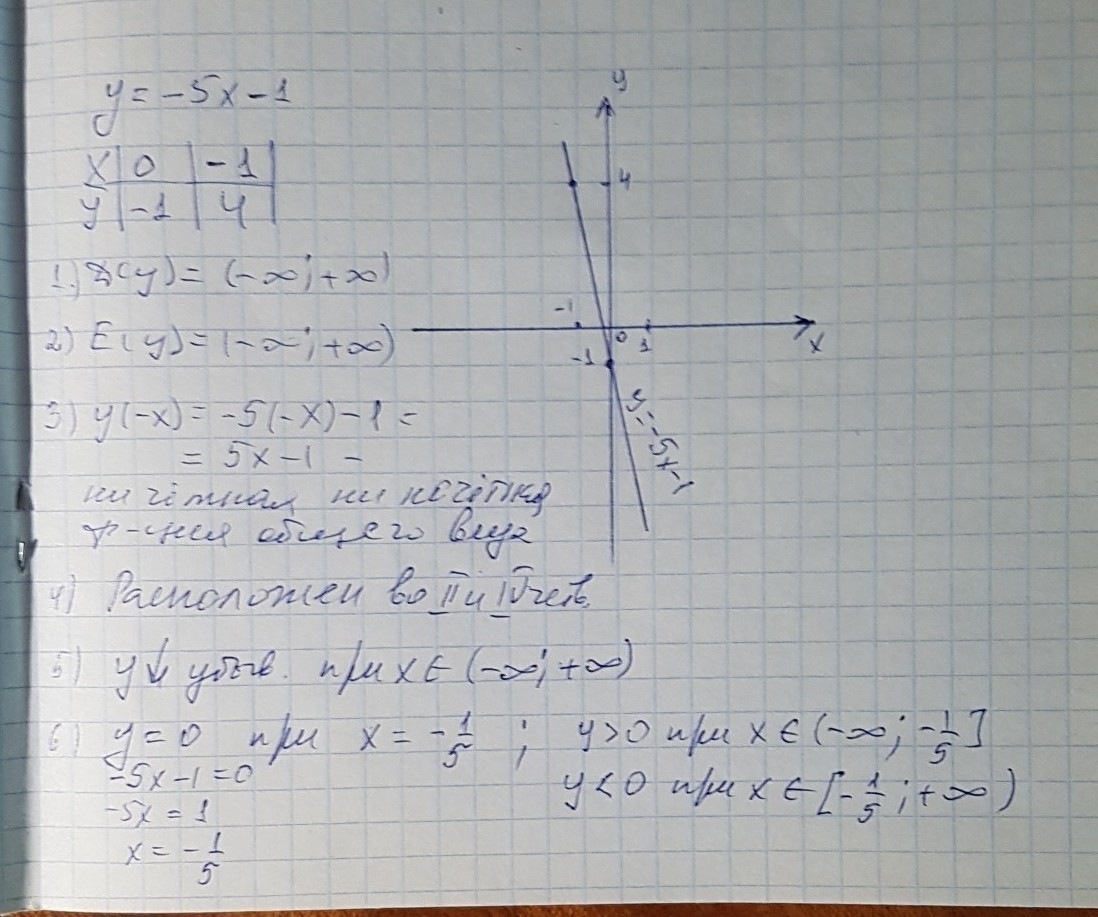 y = -5x - 1
x | 0 | -1 |
y | -1 | 4 |
1.) D(y) = (-∞; +∞)
2) E(y) = (-∞; +∞)
3) y(-x) = -5(-x) - 1 =
= 5x - 1 -
ни чётная ни нечётная
ф-ция общего вида
4) Расположен во II и IV четв.
5) y↓ убыв. при x ∈ (-∞; +∞)
6) y = 0 при x = -1/5 ; y > 0 при x ∈ (-∞; -1/5]
-5x - 1 = 0 y < 0 при x ∈ [-1/5; +∞)
-5x = 1
x = -1/5
y
4
-1 0 1 x
-1
y = -5x-1